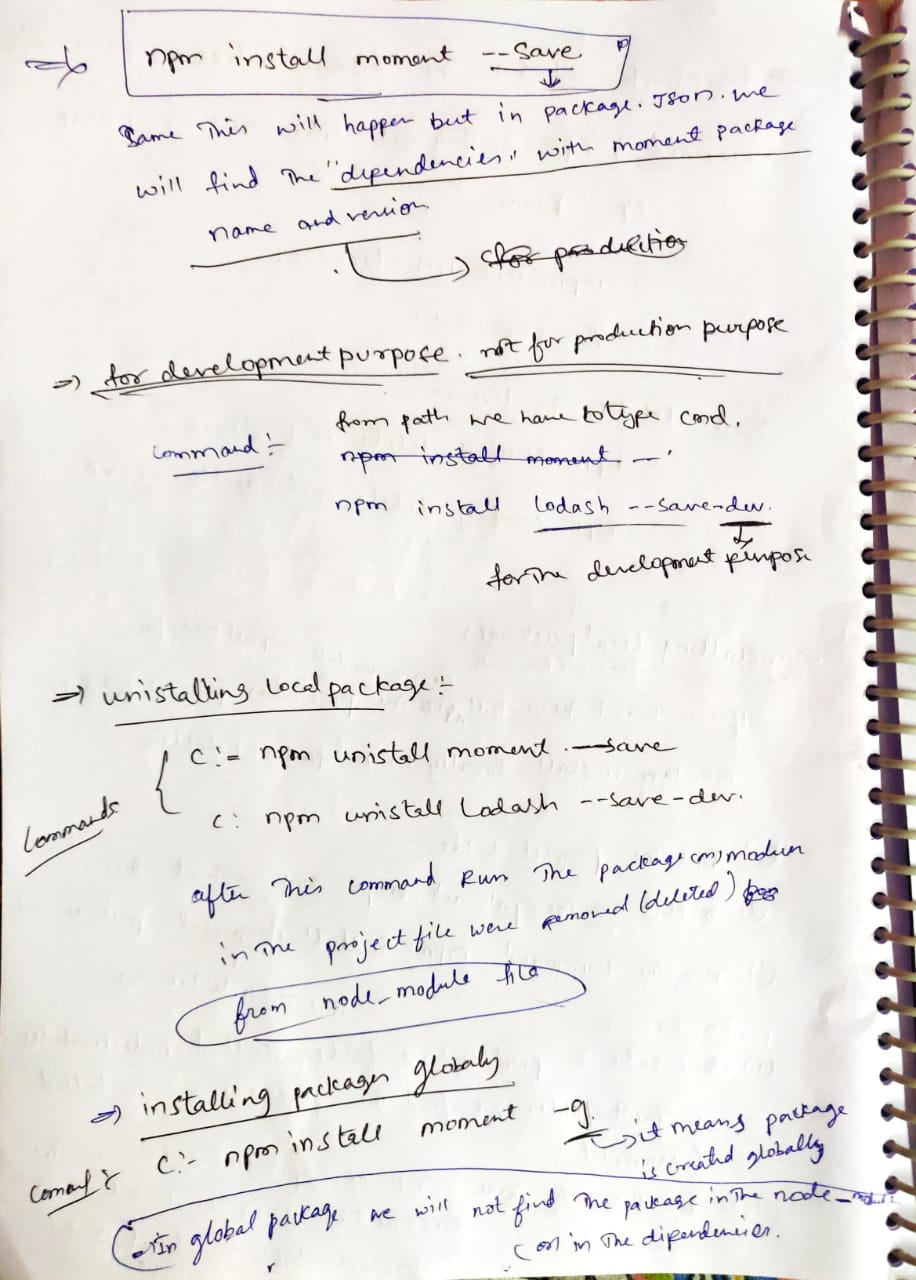 => npm install moment --save
Same This will happen but in package.Json. we
will find The "dependencies" with moment package
name and version
for production
=> for development purpose. not for production purpose
from path we have to type cmd.
Command :- npm install moment --
npm install lodash --save-dev.
for The development purpose
=> unistalling Local package :-
Commands
C:- npm unistall moment --save
C: npm unistall Lodash --save-dev.
after This command Run The package (or)
in The project file were removed (deleted)
from node_module file
=> installing packages globaly
C:- npm install moment -g.
it means package
is created globally
In global package we will not find The package in The node_
(or) in The dipendencies.